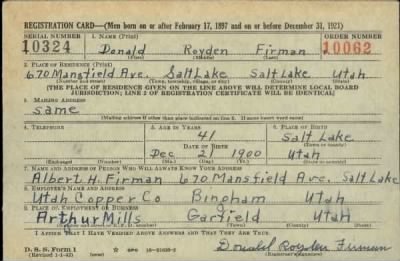 REGISTRATION CARD—(Men born on or after February 17, 1897 and on or before December 31, 1921)
SERIAL NUMBER 1. NAME (Print) ORDER NUMBER
10324 Donald Royden Firman 10062
(First) (Middle) (Last)
2. PLACE OF RESIDENCE (Print)
670 Mansfield Ave. Salt Lake Salt Lake Utah
(Number and street) (Town, township, village, or city) (County) (State)
[THE PLACE OF RESIDENCE GIVEN ON THE LINE ABOVE WILL DETERMINE LOCAL BOARD
JURISDICTION; LINE 2 OF REGISTRATION CERTIFICATE WILL BE IDENTICAL]
3. MAILING ADDRESS
same
[Mailing address if other than place indicated on line 2. If same insert word same]
4. TELEPHONE 5. AGE IN YEARS 6. PLACE OF BIRTH
41 Salt Lake
DATE OF BIRTH (Town or county)
Dec 21 1900 Utah
(Exchange) (Number) (Mo.) (Day) (Yr.) (State or country)
7. NAME AND ADDRESS OF PERSON WHO WILL ALWAYS KNOW YOUR ADDRESS
Albert H. Firman 670 Mansfield Ave. Salt Lake
8. EMPLOYER'S NAME AND ADDRESS
Utah Copper Co Bingham Utah
9. PLACE OF EMPLOYMENT OR BUSINESS
Arthur Mills Garfield Utah
(Number and street or R. F. D. number) (Town) (County) (State)
I AFFIRM THAT I HAVE VERIFIED ABOVE ANSWERS AND THAT THEY ARE TRUE.
D. S. S. Form 1
(Revised 1-1-42) GPO Donald Royden Firman
(over) (Registrant's signature)